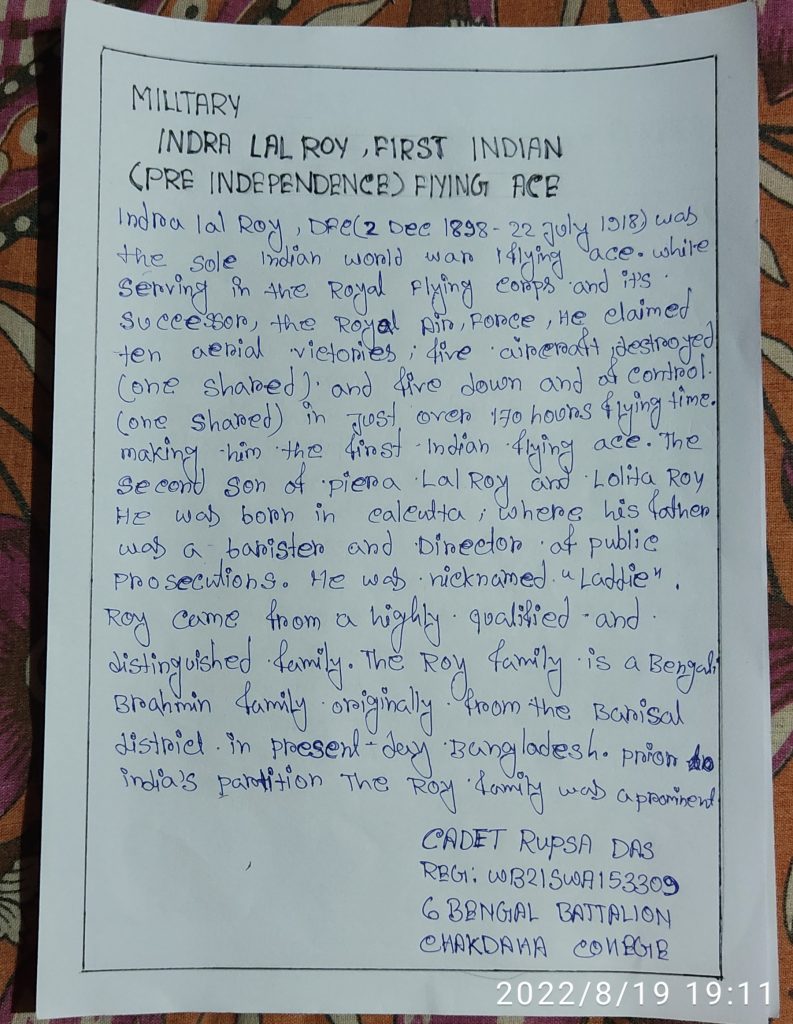 MILITARY
INDRA LAL ROY, FIRST INDIAN
(PRE INDEPENDENCE) FlYING ACE
Indra lal Roy, DFC (2 Dec 1898 - 22 July 1918) was
the sole Indian world war 1 flying ace. while
serving in the Royal Flying corps and it's
successor, the Royal Air, Force, He claimed
ten aerial victories; five aircraft destroyed
(one shared) and five down and of control.
(one shared) in just over 170 hours flying time.
making him the first Indian flying ace. The
second son of piera Lal Roy and Lolita Roy
He was born in calcutta, where his father
was a barister and Director of public
prosecutions. He was nicknamed "Laddie".
Roy came from a highly qualified and
distinguished family. The Roy family is a Bengali
Brahmin family originally from the Barisal
district in present-day Bangladesh. prior to
india's partition The Roy family was a prominent
CADET RUPSA DAS
REGI: WB21SWA153309
6 BENGAL BATTALION
CHAKDAHA COllEGE
2022/8/19 19:11